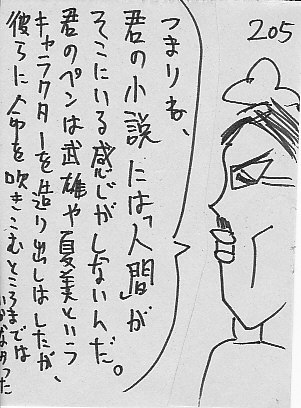 205
つまりね、
君の小説には「人間」が
そこにいる感じがしないんだ。
君のペンは武雄や夏美という
キャラクターを造り出しはしたが、
彼らに命を吹きこむところまでは
いかなかった